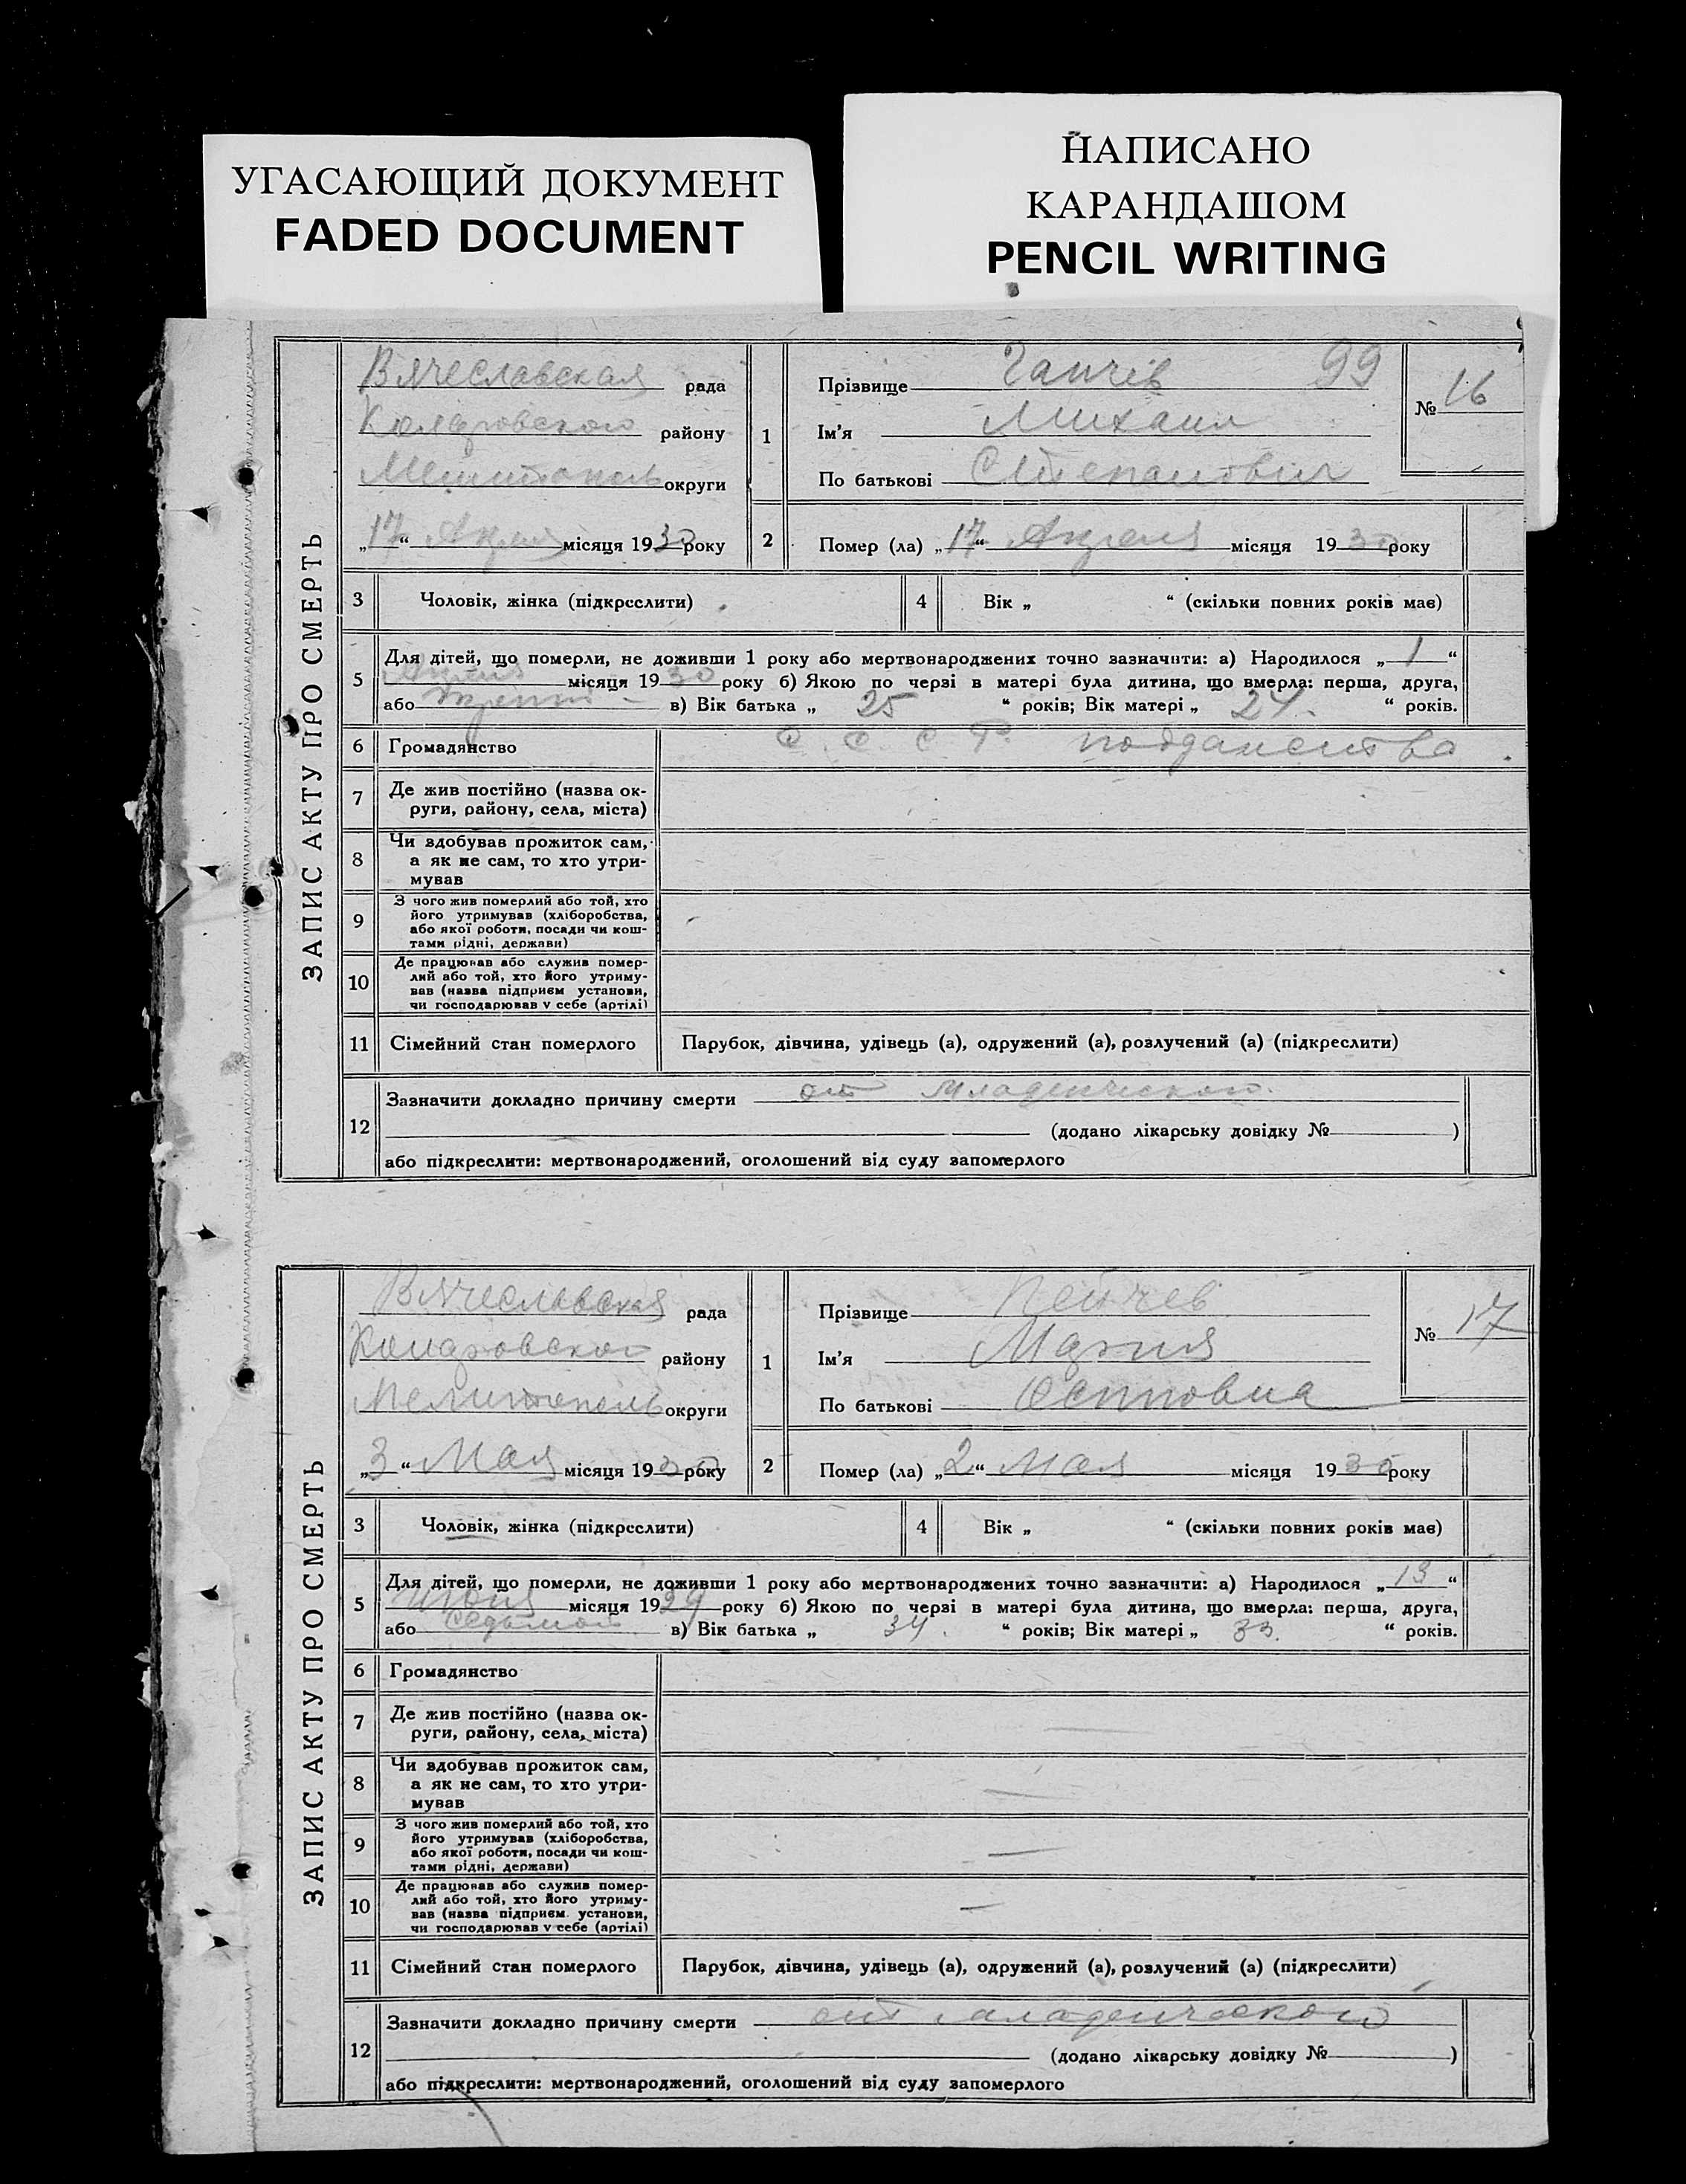 УГАСАЮЩИЙ ДОКУМЕНТ
FADED DOCUMENT
НАПИСАНО
КАРАНДАШОМ
PENCIL WRITING
ЗАПИС АКТУ ПРО СМЕРТЬ
Вячеславская рада
району
округи
„17“ Апреля місяця 1930 року
1
Прізвище 99
Ім'я Михаил
По батькові Степанович
№ 16
2 Помер (ла) „17“ Апреля місяця 1930 року
3 Чоловік, жінка (підкреслити)
4 Вік „ “ (скільки повних років має)
5 Для дітей, що померли, не доживши 1 року або мертвонароджених точно зазначити: а) Народилося „1“
Апреля місяця 1930 року б) Якою по черзі в матері була дитина, що вмерла: перша, друга,
або в) Вік батька „ 25 “ років; Вік матері „ 24. “ років.
6 Громадянство С. С. С. Р. подданства
7 Де жив постійно (назва ок-
руги, району, села, міста)
8 Чи здобував прожиток сам,
а як не сам, то хто утри-
мував
9 З чого жив померлий або той, хто
його утримував (хліборобства,
або якої роботи, посади чи кош-
тами рідні, держави)
10 Де працював або служив помер-
лий або той, хто його утриму-
вав (назва підприєм установи,
чи господарював у себе (артілі)
11 Сімейний стан померлого Парубок, дівчина, удівець (а), одружений (а), розлучений (а) (підкреслити)
12 Зазначити докладно причину смерти от младенческого.
(додано лікарську довідку № )
або підкреслити: мертвонароджений, оголошений від суду запомерлого
ЗАПИС АКТУ ПРО СМЕРТЬ
Вячеславская рада
району
Мелитополь округи
„3“ Мая місяця 1930 року
1
Прізвище Пейчев
Ім'я Мария
По батькові Осиповна
№ 17
2 Помер (ла) „2“ Мая місяця 1930 року
3 Чоловік, жінка (підкреслити)
4 Вік „ “ (скільки повних років має)
5 Для дітей, що померли, не доживши 1 року або мертвонароджених точно зазначити: а) Народилося „13“
місяця 1929 року б) Якою по черзі в матері була дитина, що вмерла: перша, друга,
або седьмой в) Вік батька „ 34. “ років; Вік матері „ 33. “ років.
6 Громадянство
7 Де жив постійно (назва ок-
руги, району, села, міста)
8 Чи здобував прожиток сам,
а як не сам, то хто утри-
мував
9 З чого жив померлий або той, хто
його утримував (хліборобства,
або якої роботи, посади чи кош-
тами рідні, держави)
10 Де працював або служив помер-
лий або той, хто його утриму-
вав (назва підприєм. установи,
чи господарював у себе (артілі)
11 Сімейний стан померлого Парубок, дівчина, удівець (а), одружений (а), розлучений (а) (підкреслити)
12 Зазначити докладно причину смерти от младенческого
(додано лікарську довідку № )
або підкреслити: мертвонароджений, оголошений від суду запомерлого